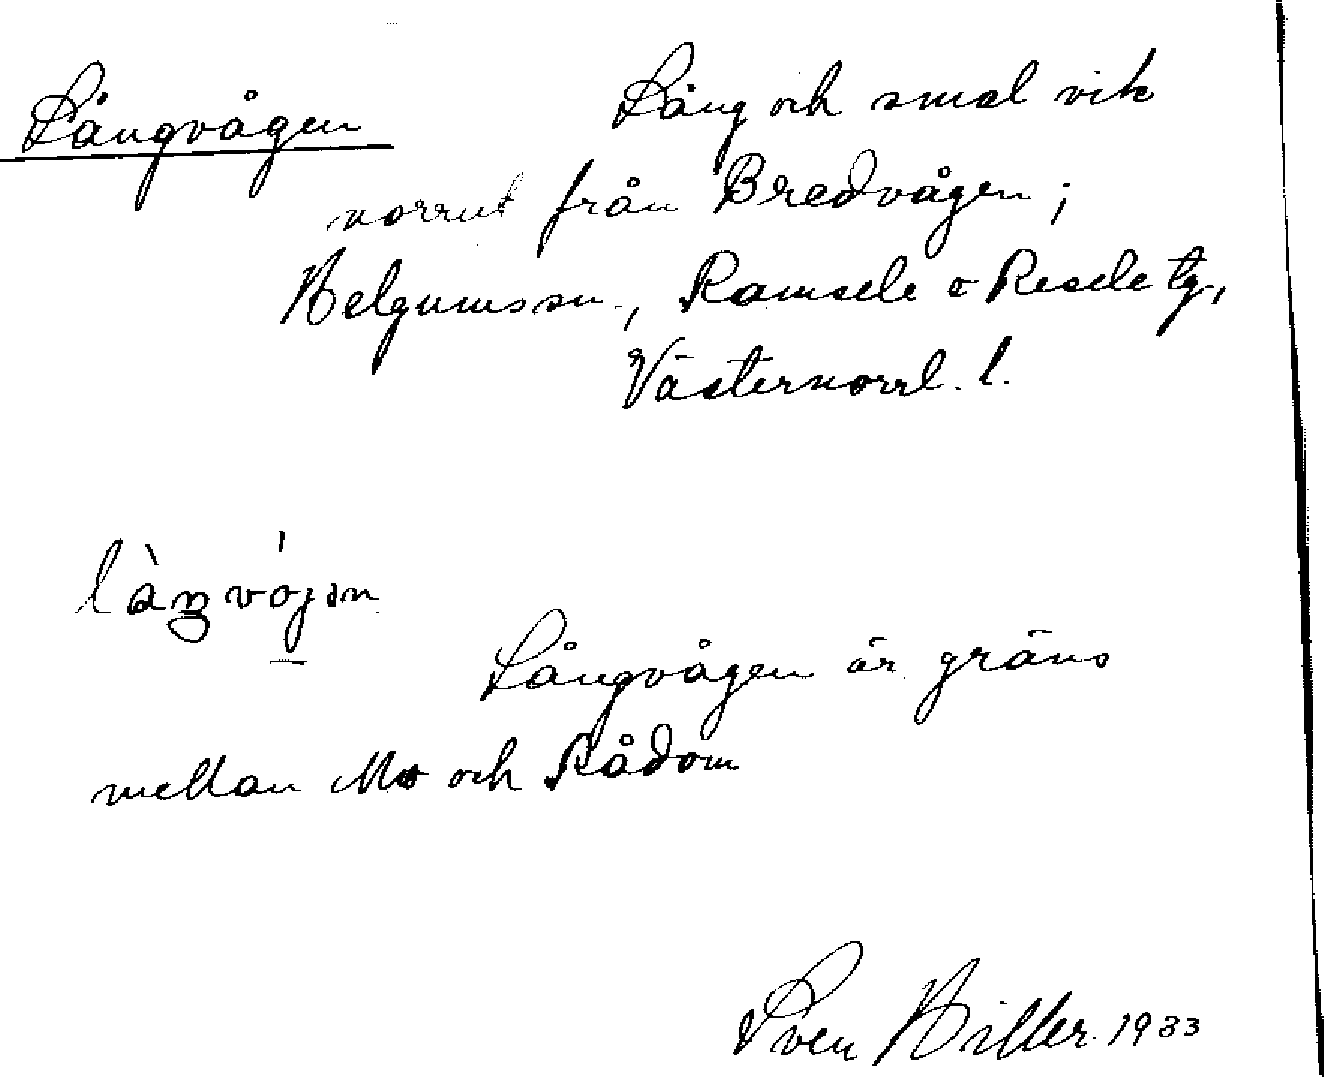 Långvågen Lång och smal vik
norrut från Bredvågen;
Helgumssn., Ramsele o Resele tg,
Västernorrl. l.
Långvågen är gräns
mellan Mo och Rådom
Sven Hiller 1933